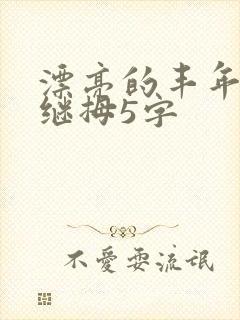 漂亮的丰年
继拇5字
不愛耍流氓